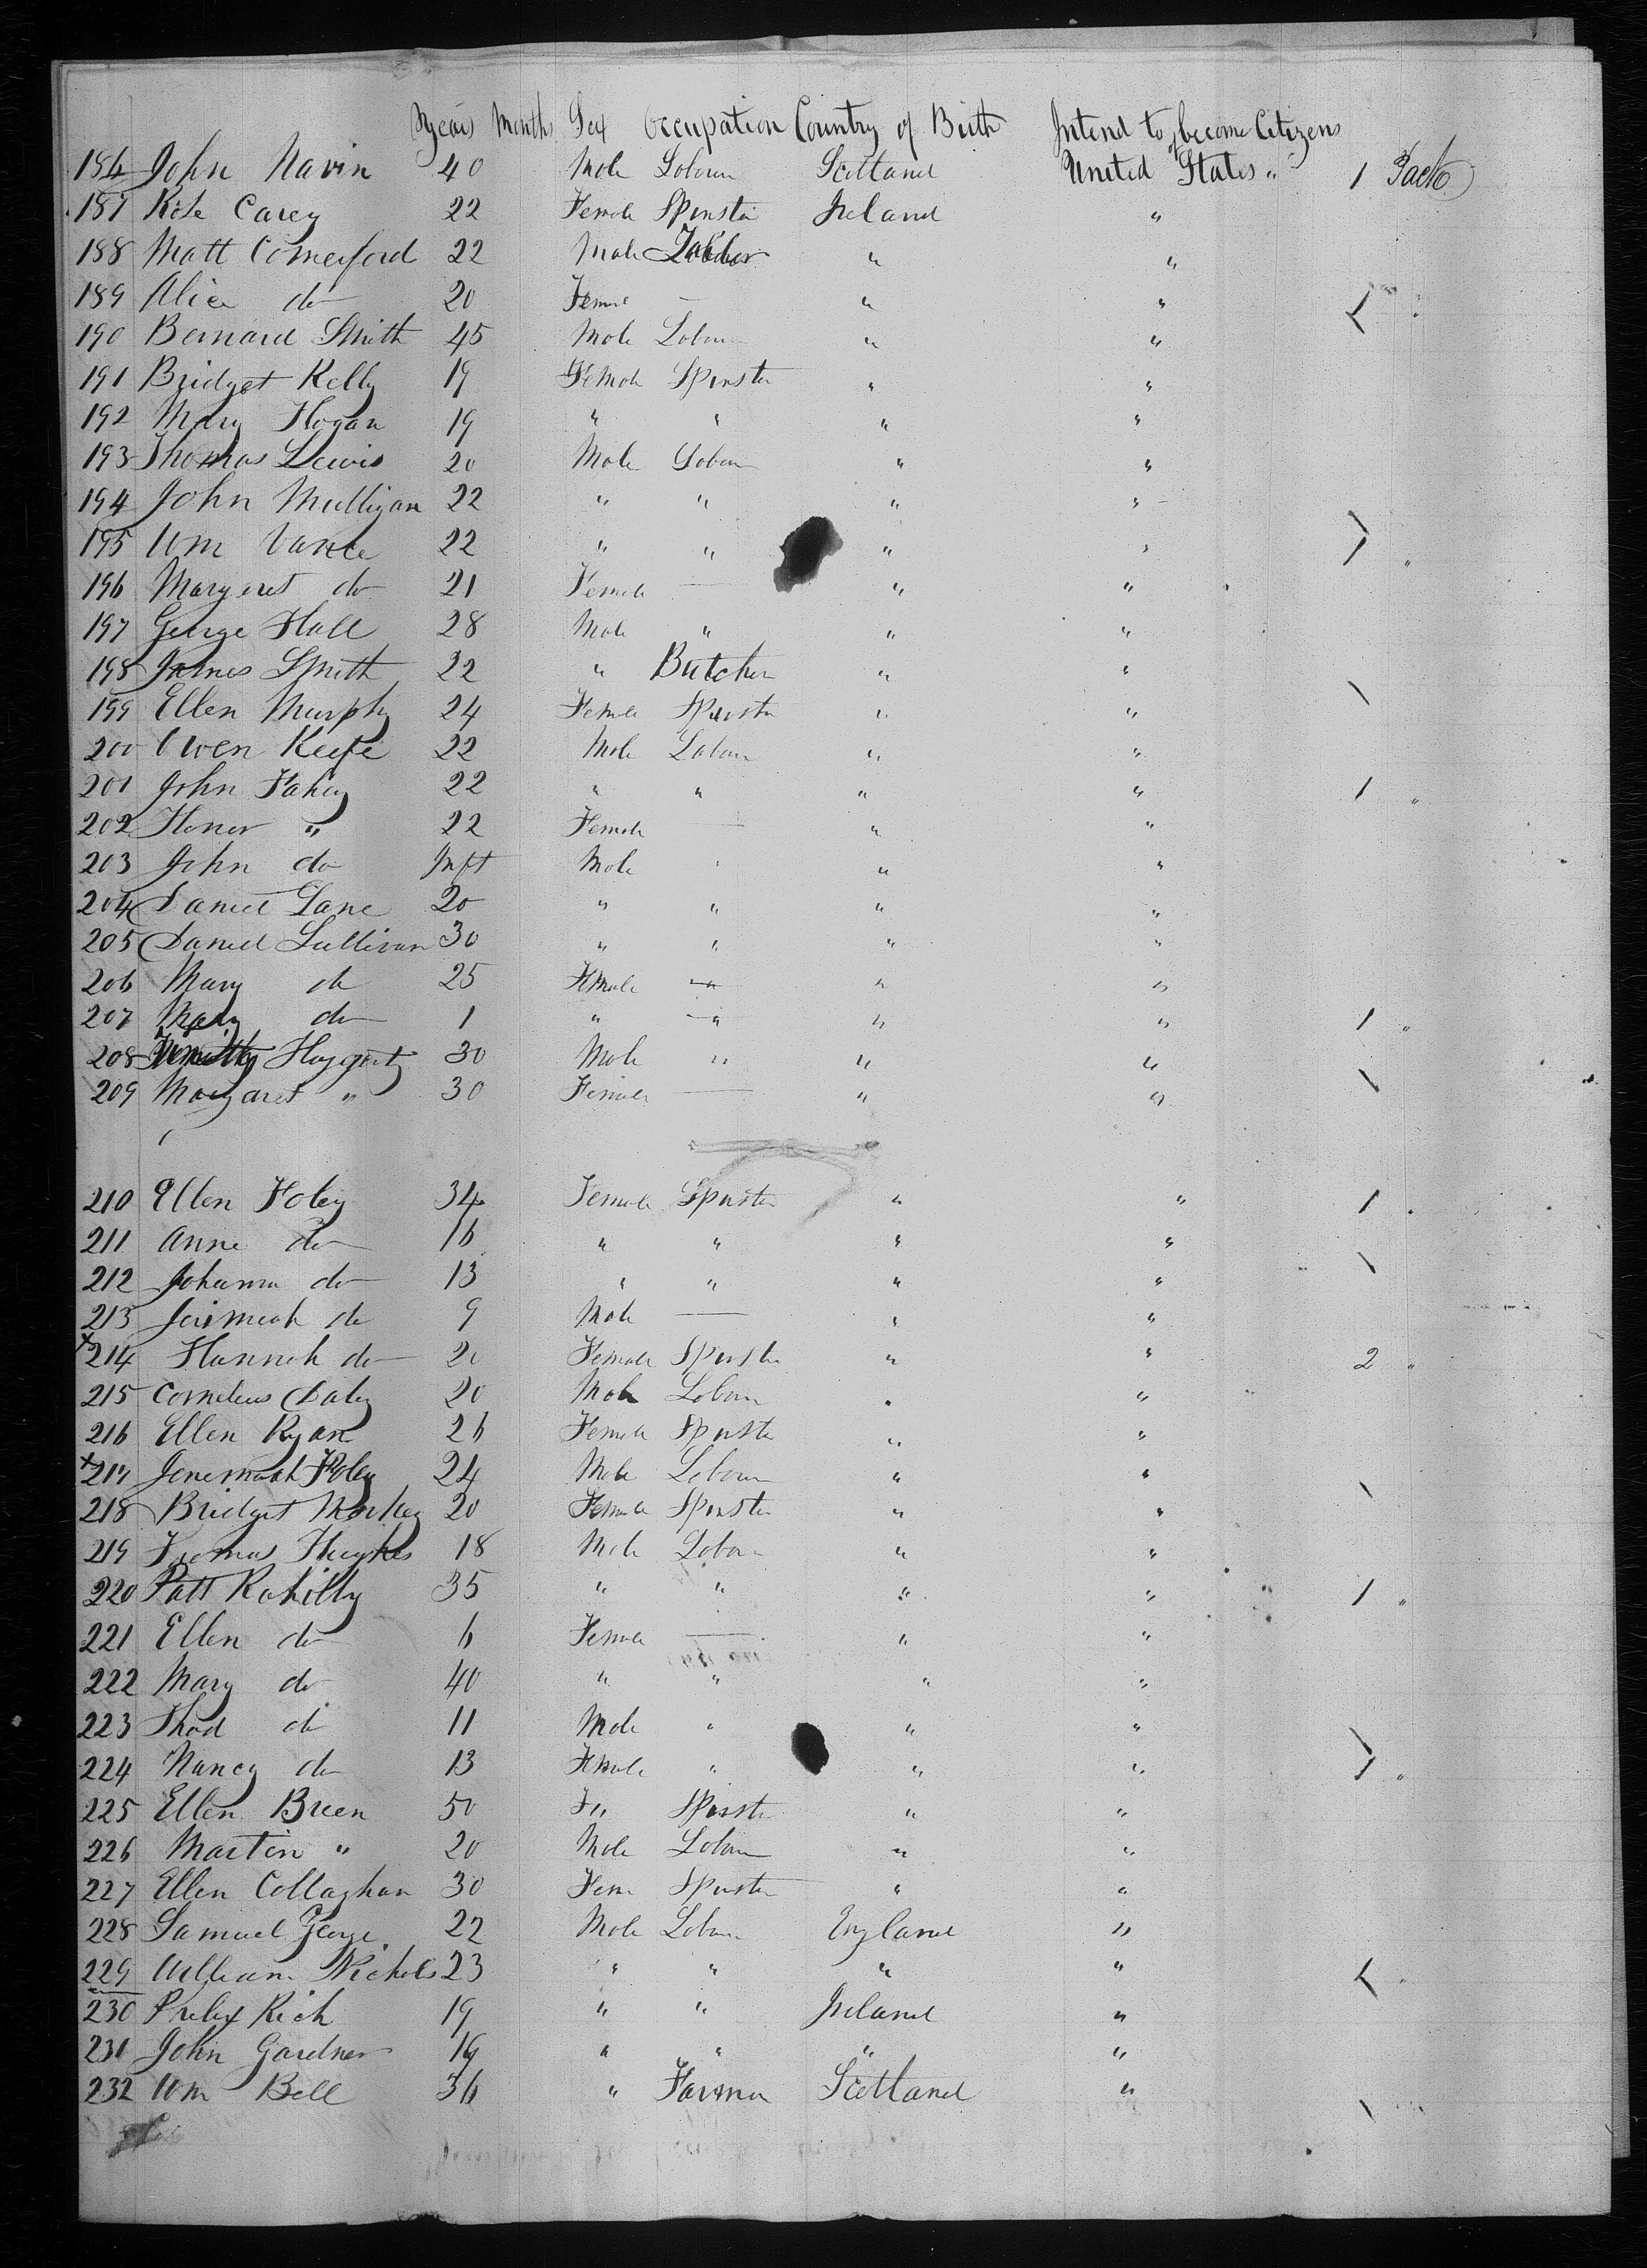 Years Months Sex Occupation Country of Birth Intend to become Citizens
186 John Navin 40 Male Labour Scotland United States " 1 Pack
187 Kate Carey 22 Female Spinster Ireland "
188 Matt Comerford 22 Male Labour " "
189 Alice do 20 Female — " "
190 Bernard Smith 45 Male Labour " "
191 Bridget Kelly 19 Female Spinster " "
192 Mary Hogan 19 " " " "
193 Thomas Lewis 20 Male Labour " "
194 John Mulligan 22 " " " "
195 Wm Vance 22 " " " " 1 "
196 Margaret do 21 Female — " "
197 George Hall 28 Male " " "
198 James Smith 22 " Butcher " "
199 Ellen Murphy 24 Female Spinster " "
200 Owen Keefe 22 Male Labour " "
201 John Fahey 22 " " " " 1 "
202 Honor " 22 Female — " "
203 John do Inft Male " " "
204 Daniel Lane 20 " " " "
205 Daniel Sullivan 30 " " " "
206 Mary do 25 Female " " "
207 Mary do 1 " " " " 1 "
208 Timothy Hagerty 30 Male " " "
209 Margaret " 30 Female — " "
210 Ellen Foley 34 Female Spinster " " 1 "
211 Anne do 16 " " " "
212 Johanna do 13 " " " "
213 Jerimeah do 9 Male — " "
x 214 Hannah do 20 Female Spinster " " 2 "
215 Cornelius Daley 20 Male Labour " "
216 Ellen Ryan 26 Female Spinster " "
x 217 Jeremiah Foley 24 Male Labour " "
218 Bridget Markey 20 Female Spinster " "
219 Thomas Hughes 18 Male Labour " "
220 Patt Rahilly 35 " " " " 1 "
221 Ellen do 6 Female — " "
222 Mary do 40 " " " "
223 Thad do 11 Male " " "
224 Nancy do 13 Female " " " 1 "
225 Ellen Breen 50 Fe " Spinster " "
226 Martin " 20 Male Labour " "
227 Ellen Collaghan 30 Fem Spinster " "
228 Samuel George 22 Male Labour England "
229 William Nichols 23 " " " "
230 Rich 19 " " Ireland "
231 John Gardner 19 " " " "
232 Wm Bell 36 " Farmer Scotland "